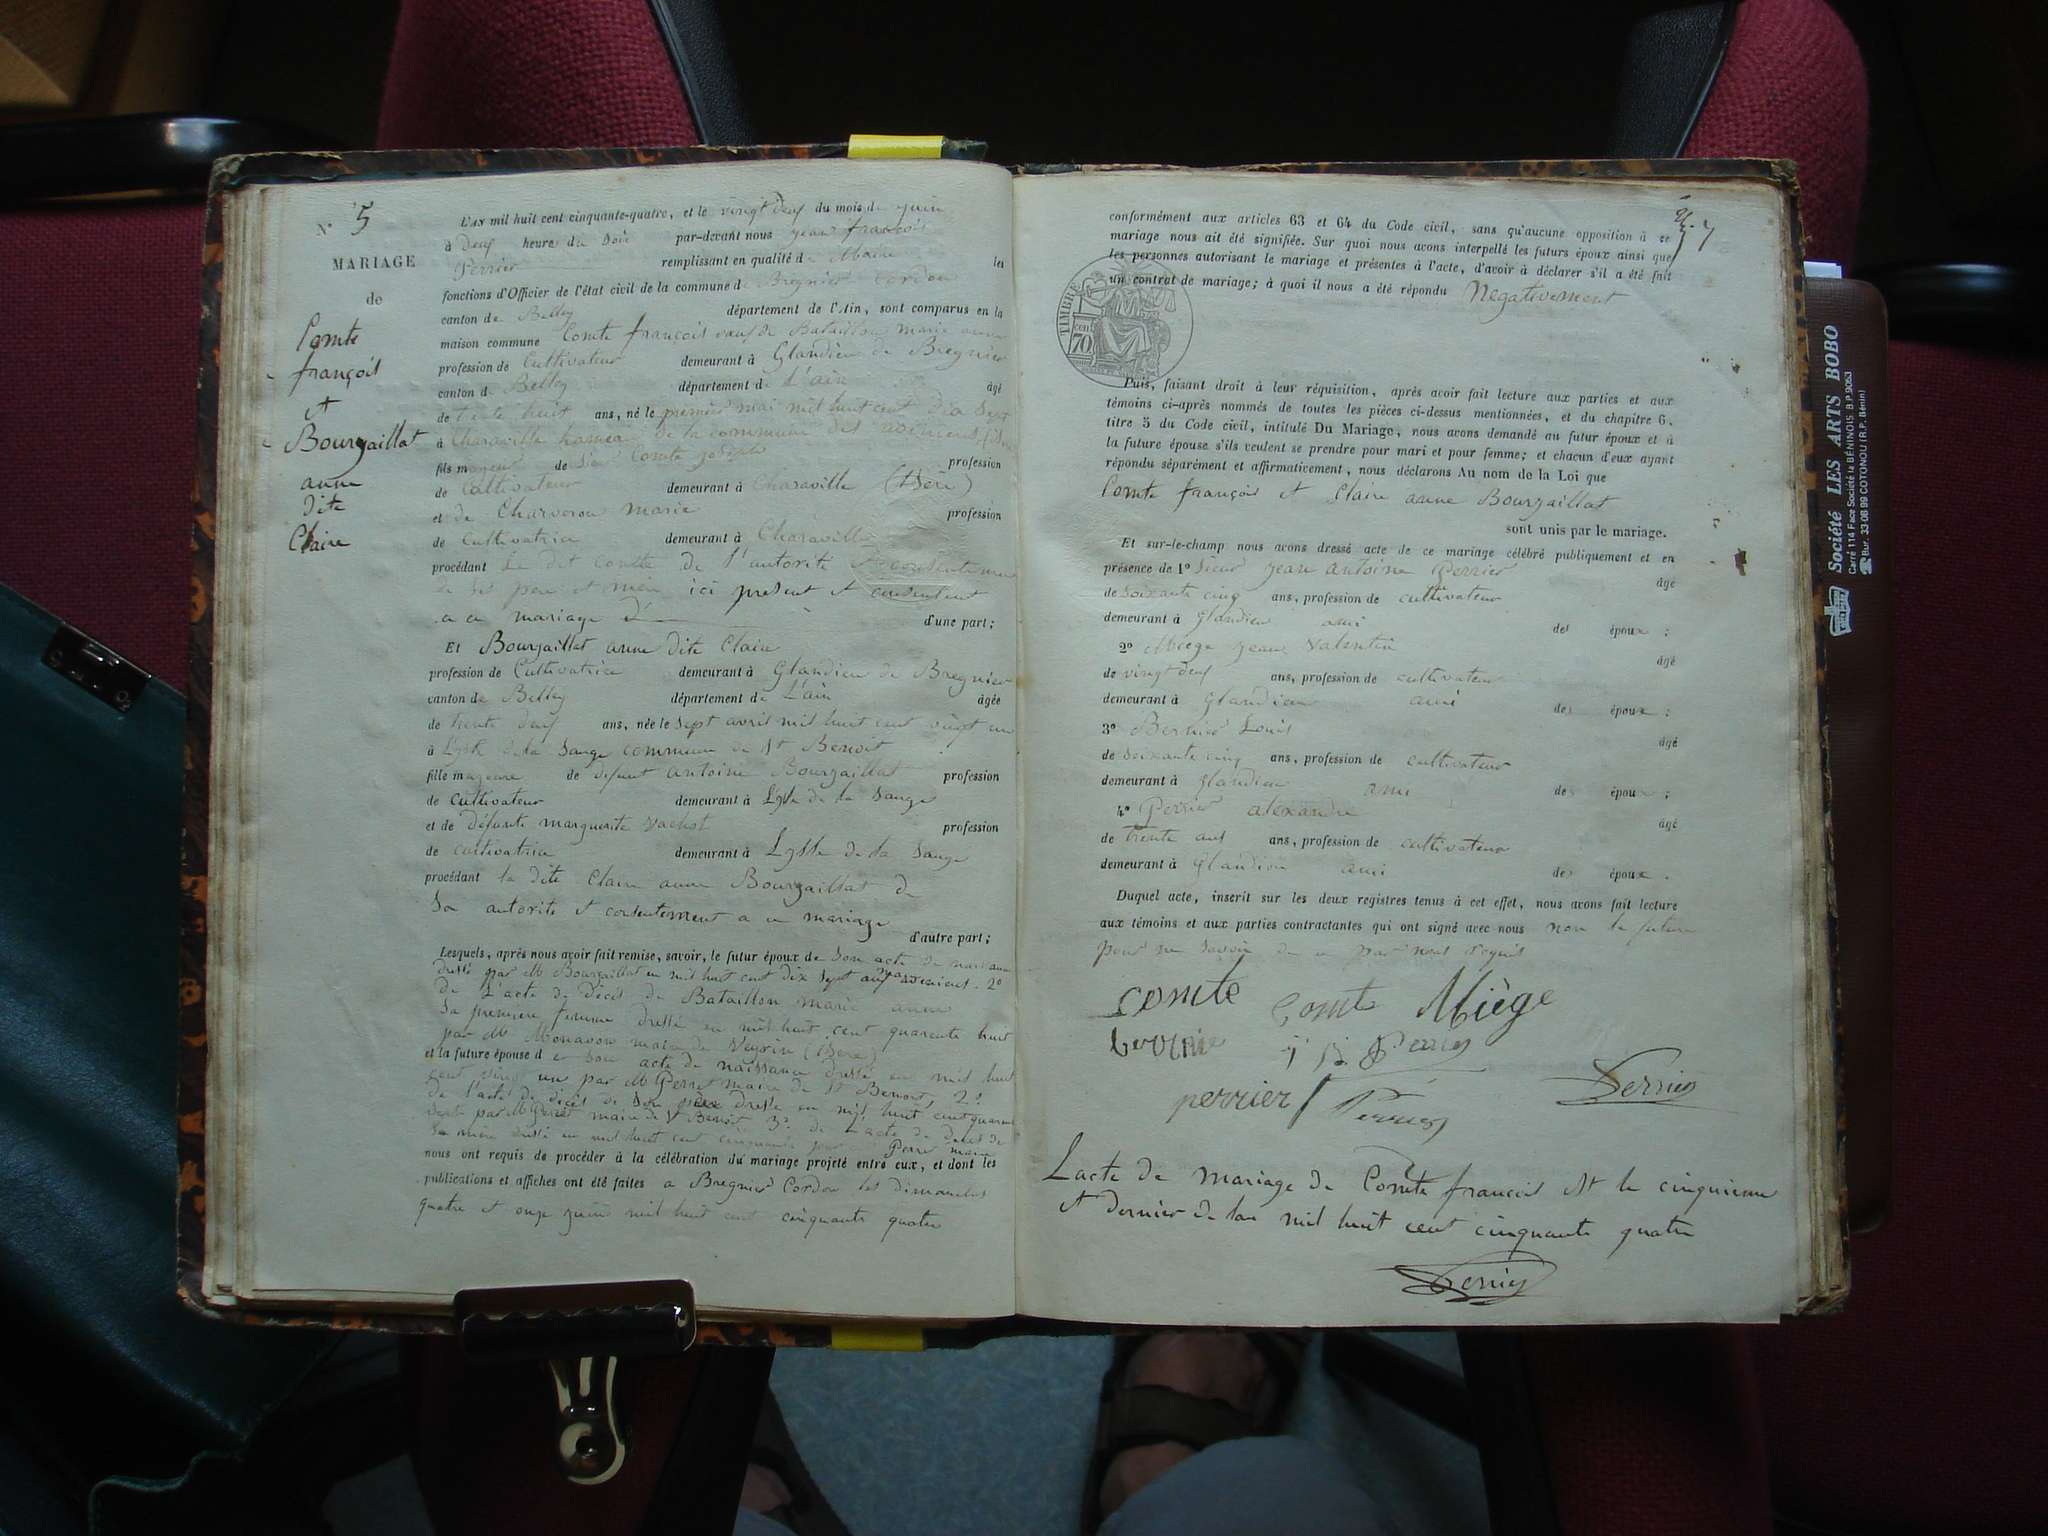 N° 5
MARIAGE
de
Comte
françois
et
Bourzaillat
anne
dite
Claire
L'AN mil huit cent cinquante-quatre, et le vingt deux du mois de juin
à deux heure du soir par-devant nous jean françois
Perrier remplissant en qualité de Maire les
fonctions d'Officier de l'état civil de la commune de Bregnier Cordon
canton de Belley département de l'Ain, sont comparus en la
maison commune Comte françois veuf de Bataillon marie anne
profession de Cultivateur demeurant à Glandieu de Bregnier
canton de Belley département de L'ain âgé
de trente huit ans, né le premier mai mil huit cent dix sept
à Charaville hameau de la commune des avenieres
fils majeur de Sieur Comte joseph profession
de Cultivateur demeurant à Charaville (Isère)
et de Charveron marie profession
de Cultivatrice demeurant à Charaville
procédant Le dit comte de l'autorité et consentement
de ses pere et mère ici present et consentent
a ce mariage d'une part;
Et Bourzaillat anne dite Claire
profession de Cultivatrice demeurant à Glandieu de Bregnier
canton de Belley département de L'ain âgée
de trente deux ans, née le sept avril mil huit cent vingt un
à de la Sauge commune de St Benoit
fille majeure de defunt antoine Bourzaillat profession
de cultivateur demeurant à de la Sauge
et de défunte marguerite Vachot profession
de cultivatrice demeurant à de la Sauge
procédant la dite Claire anne Bourzaillat de
Son autorité et consentement a ce mariage
d'autre part;
Lesquels, après nous avoir fait remise, savoir, le futur époux de Son acte de naissance
dressé par M Bourzaillat en mil huit cent dix sept aux avenieres. 2°
de L'acte de Décès de Bataillon marie anne
Sa premiere femme dressé en mil huit cent quarante huit
par M Monavon maire de Veyrin (Isere)
et la future épouse de son acte de naissance dressé en mil huit
cent vingt un par M Perret maire de St Benoit, 2°
de l'acte de décès de Son père dressé en mil huit cent quarante
par M Perret maire de St Benoit 3° de L'acte de décès de
Sa mère dressé en mil huit cent cinquante par Perret maire
nous ont requis de procéder à la célébration du mariage projeté entre eux, et dont les
publications et affiches ont été faites a Bregnier Cordon les dimanches
quatre et onze juin mil huit cent cinquante quatre
7
conformément aux articles 63 et 64 du Code civil, sans qu'aucune opposition à ce
mariage nous ait été signifiée. Sur quoi nous avons interpellé les futurs époux ainsi que
les personnes autorisant le mariage et présentes à l'acte, d'avoir à déclarer s'il a été fait
un contrat de mariage; à quoi il nous a été répondu Negativement
TIMBRE
70
Puis, faisant droit à leur réquisition, après avoir fait lecture aux parties et aux
témoins ci-après nommés de toutes les pièces ci-dessus mentionnées, et du chapitre 6,
titre 5 du Code civil, intitulé Du Mariage, nous avons demandé au futur époux et à
la future épouse s'ils veulent se prendre pour mari et pour femme; et chacun d'eux ayant
répondu séparément et affirmativement, nous déclarons Au nom de la Loi que
Comte françois et Claire anne Bourzaillat
sont unis par le mariage.
Et sur-le-champ nous avons dressé acte de ce mariage célébré publiquement et en
présence de 1° Sieur jean antoine Perrier âgé
de Soixante cinq ans, profession de cultivateur
demeurant à Glandieu ami des époux ;
2° Miege jean Valentin âgé
de vingt deux ans, profession de cultivateur
demeurant à Glandieu ami des époux ;
3° Bernier Louis âgé
de soixante cinq ans, profession de cultivateur
demeurant à glandieu ami des époux ;
4° Perrier alexandre âgé
de trente ans, profession de cultivateur
demeurant à Glandieu ami des époux .
Duquel acte, inscrit sur les deux registres tenus à cet effet, nous avons fait lecture
aux témoins et aux parties contractantes qui ont signé avec nous non la future
pour ne Savoir de ce par nous requis
comte Comte Miège
Perrier
perrier Perrier Perrier
Lacte de mariage de Comte françois est le cinquieme
et dernier de lan mil huit cent cinquante quatre
Perrier
Société LES ARTS BOBO
Carré 114 Face Société la BÉNINOIS. B.P. 9053
Bur. 33-06-99 COTONOU (R.P. Bénin)